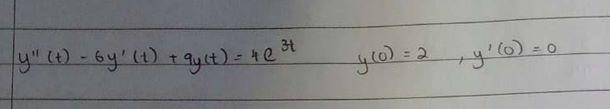 y"(t) - 6y'(t) + 9y(t) = 4e^3t y(0) = 2 , y'(0) = 0